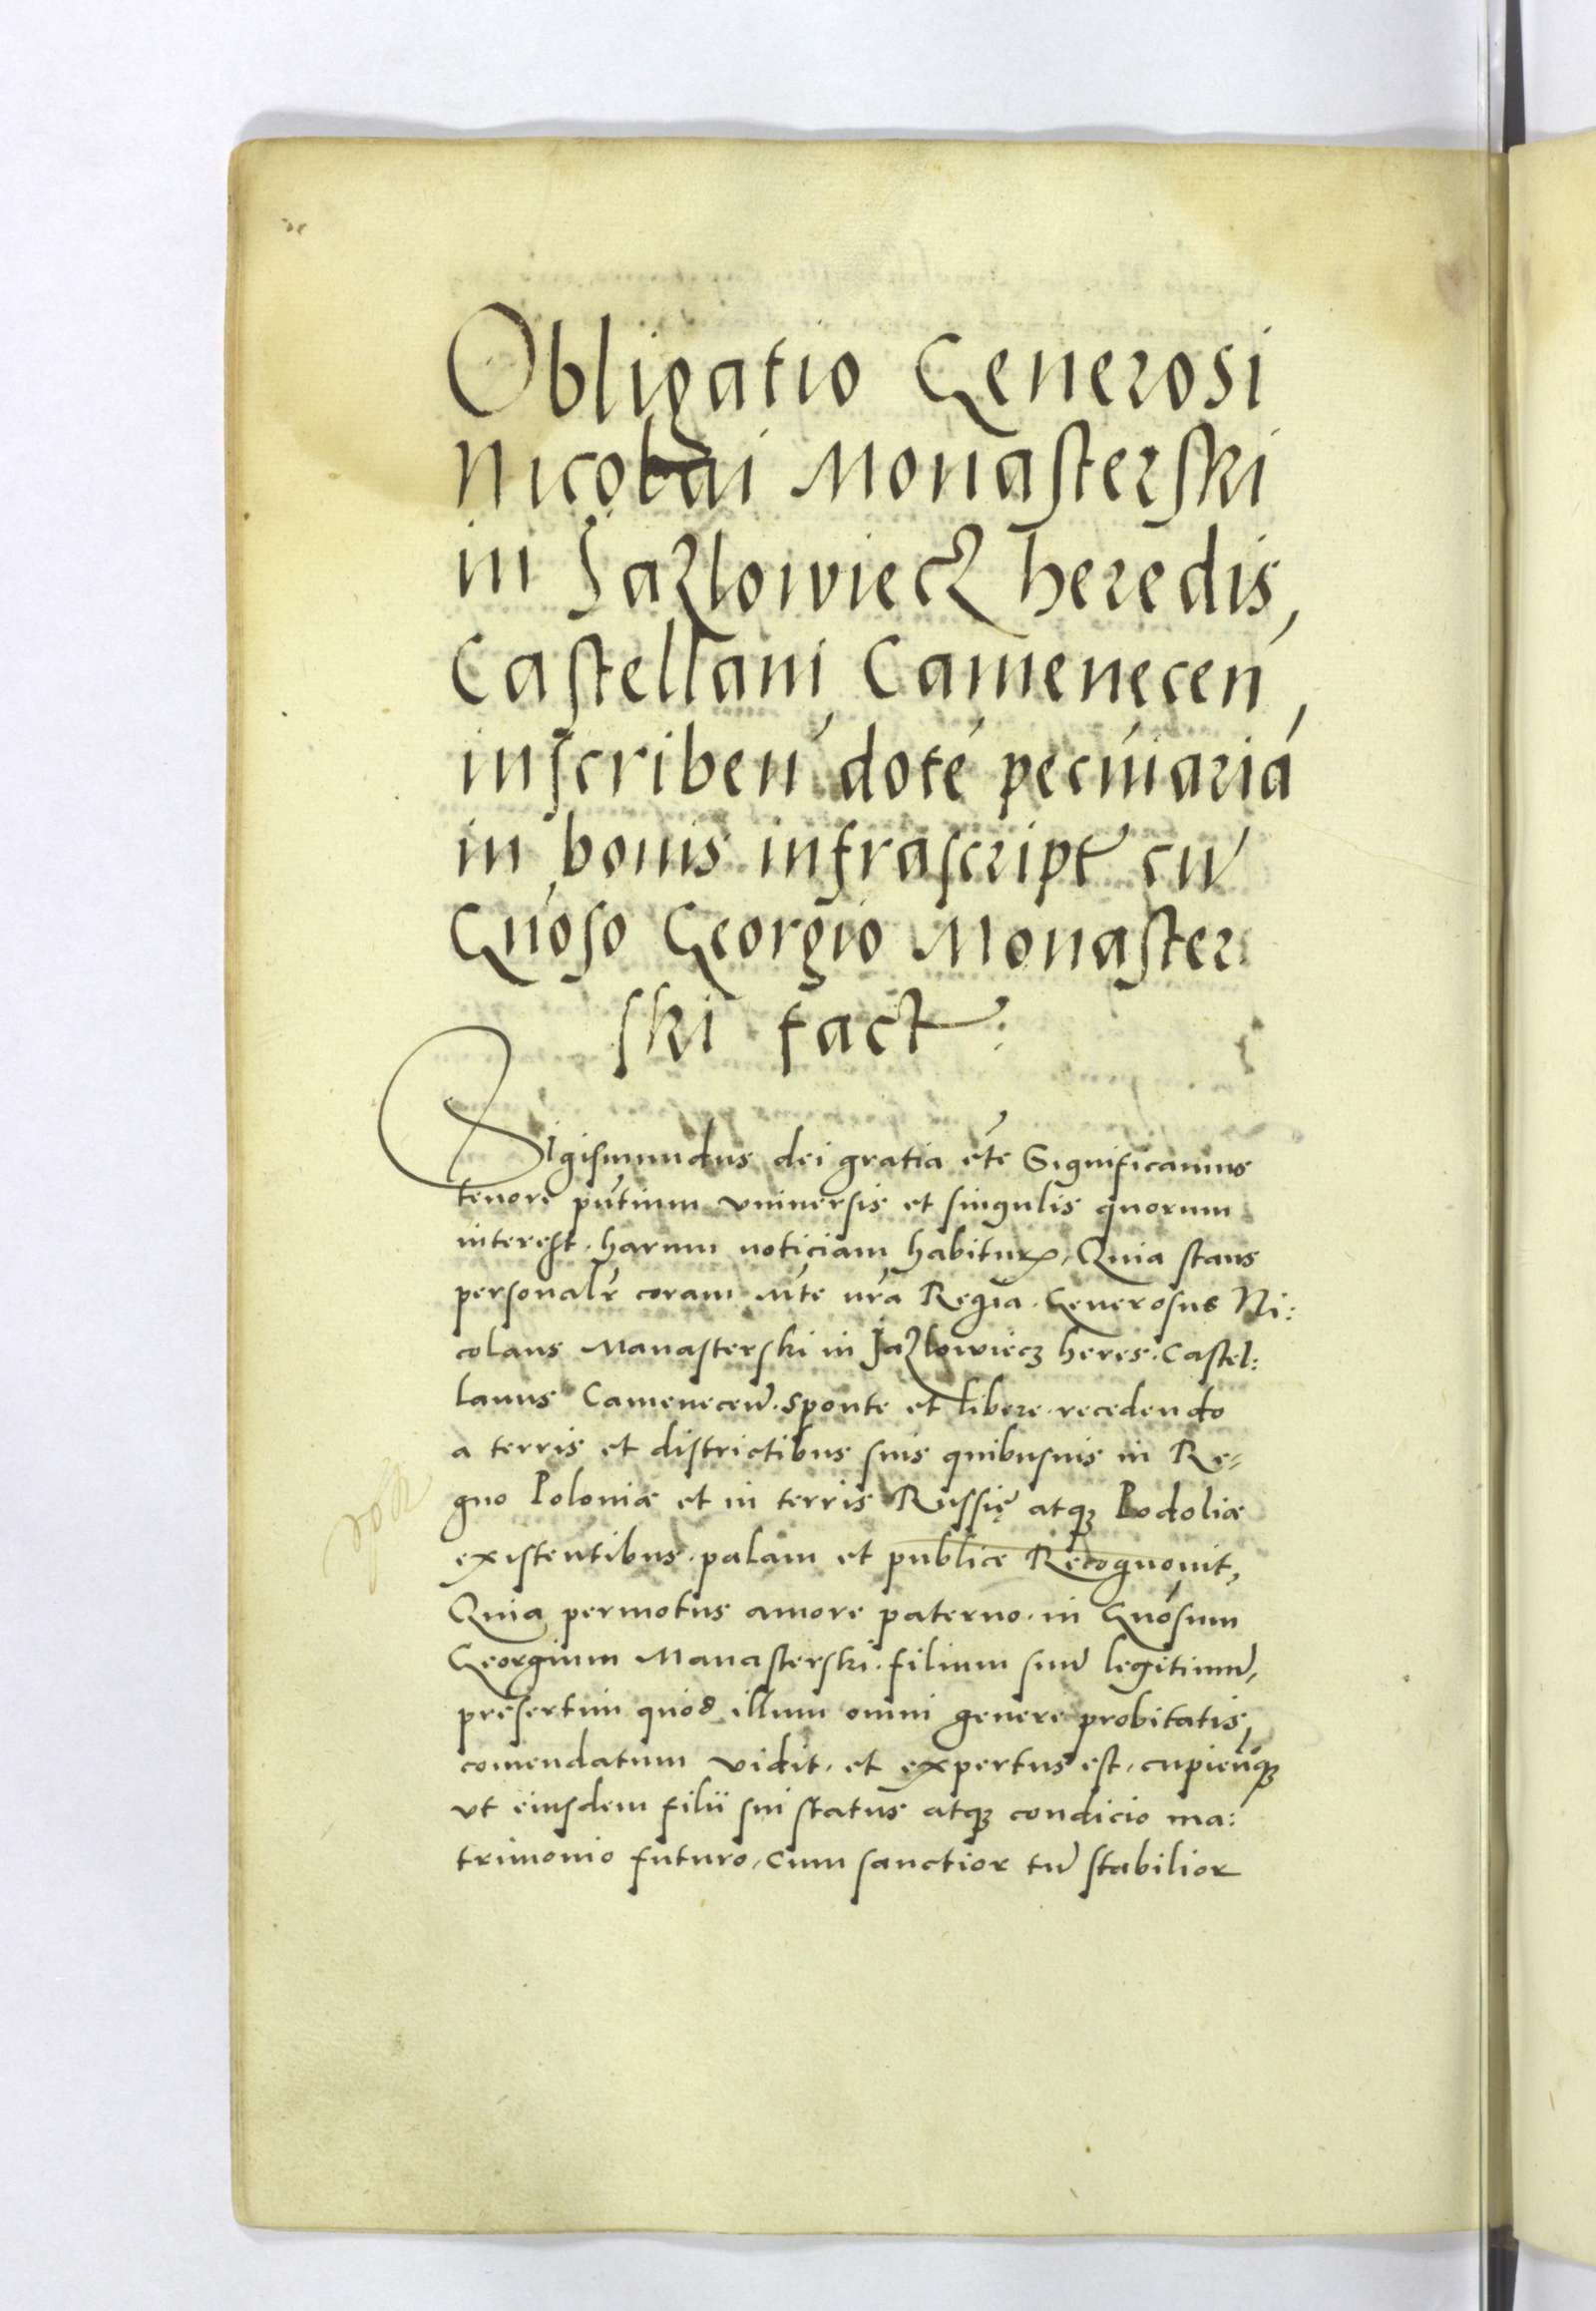 Obligatio Generosi
Nicolai Monasterski
in Jazlowiecz heredis,
Castellani Camenecen̄,
inscriben̄ dotē pecūiariā
in bonis infrascript cū
Gnōso Georgio Monaster
ski fact:
Sigismundus dei gratia etc̄ Significamus
tenore pn̄tium vniuersis et singulis quorum
interest. harum noticiam habituꝝ, Quia stans
personalr̄ coram Mte nr̄a Regia. Generosus Ni:
colaus Manasterski in Jazlowiecz heres. Castel:
lanus Camenecen̄. sponte et libere. recedendo
a terris et districtibus suis quibusuis in Re-
gno Poloniæ et in terris Russię atqꝫ Podoliæ
existentibus. palam et publicæ Recognouit,
Quia permotus amore paterno. in Gnōsum
Georgium Manasterski. filium suū legitimū,
presertim quod illum omni genere probitatis,
comendatum vidit. et expertus est, cupien̄qꝫ
vt eiusdem filii sui status atqꝫ condicio ma:
trimonio futuro, cum sanctior tū stabilior